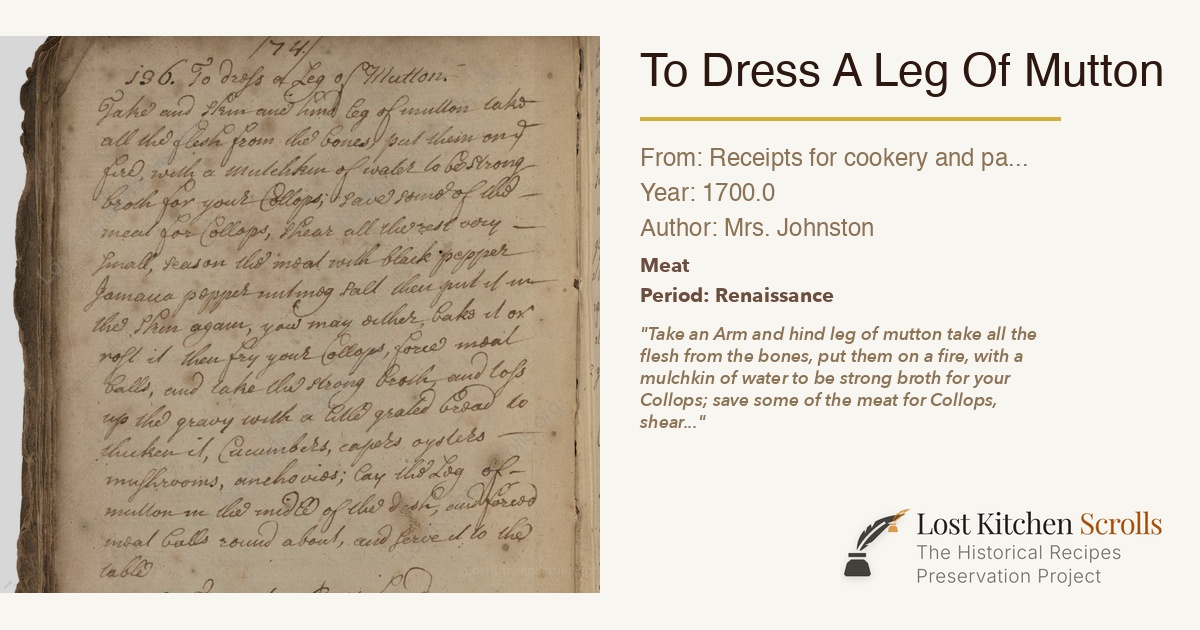 174
136. To dress a Leg of Mutton.
Take and Skin and hind leg of mutton take
all the flesh from the bones, put them on ye
fire, with a mutchkin of water to be strong
broth for your Collops; save some of the
meat for Collops, shear all the rest very
small, season the meat with black pepper
Jamaica pepper nutmeg salt then put it in
the Skin again, you may either bake it or
rost it then fry your Collops, force meat
balls, and take the strong broth, and toss
up the gravy with a little grated bread to
thicken it, Cucumbers, capers oysters
mushrooms, anchovies; lay the Leg of
mutton in the middle of the dish, and forced
meat balls round about, and serve it to the
table
To Dress A Leg Of Mutton
From: Receipts for cookery and pa...
Year: 1700.0
Author: Mrs. Johnston
Meat
Period: Renaissance
"Take an Arm and hind leg of mutton take all the
flesh from the bones, put them on a fire, with a
mulchkin of water to be strong broth for your
Collops; save some of the meat for Collops,
shear..."
Lost Kitchen Scrolls
The Historical Recipes
Preservation Project